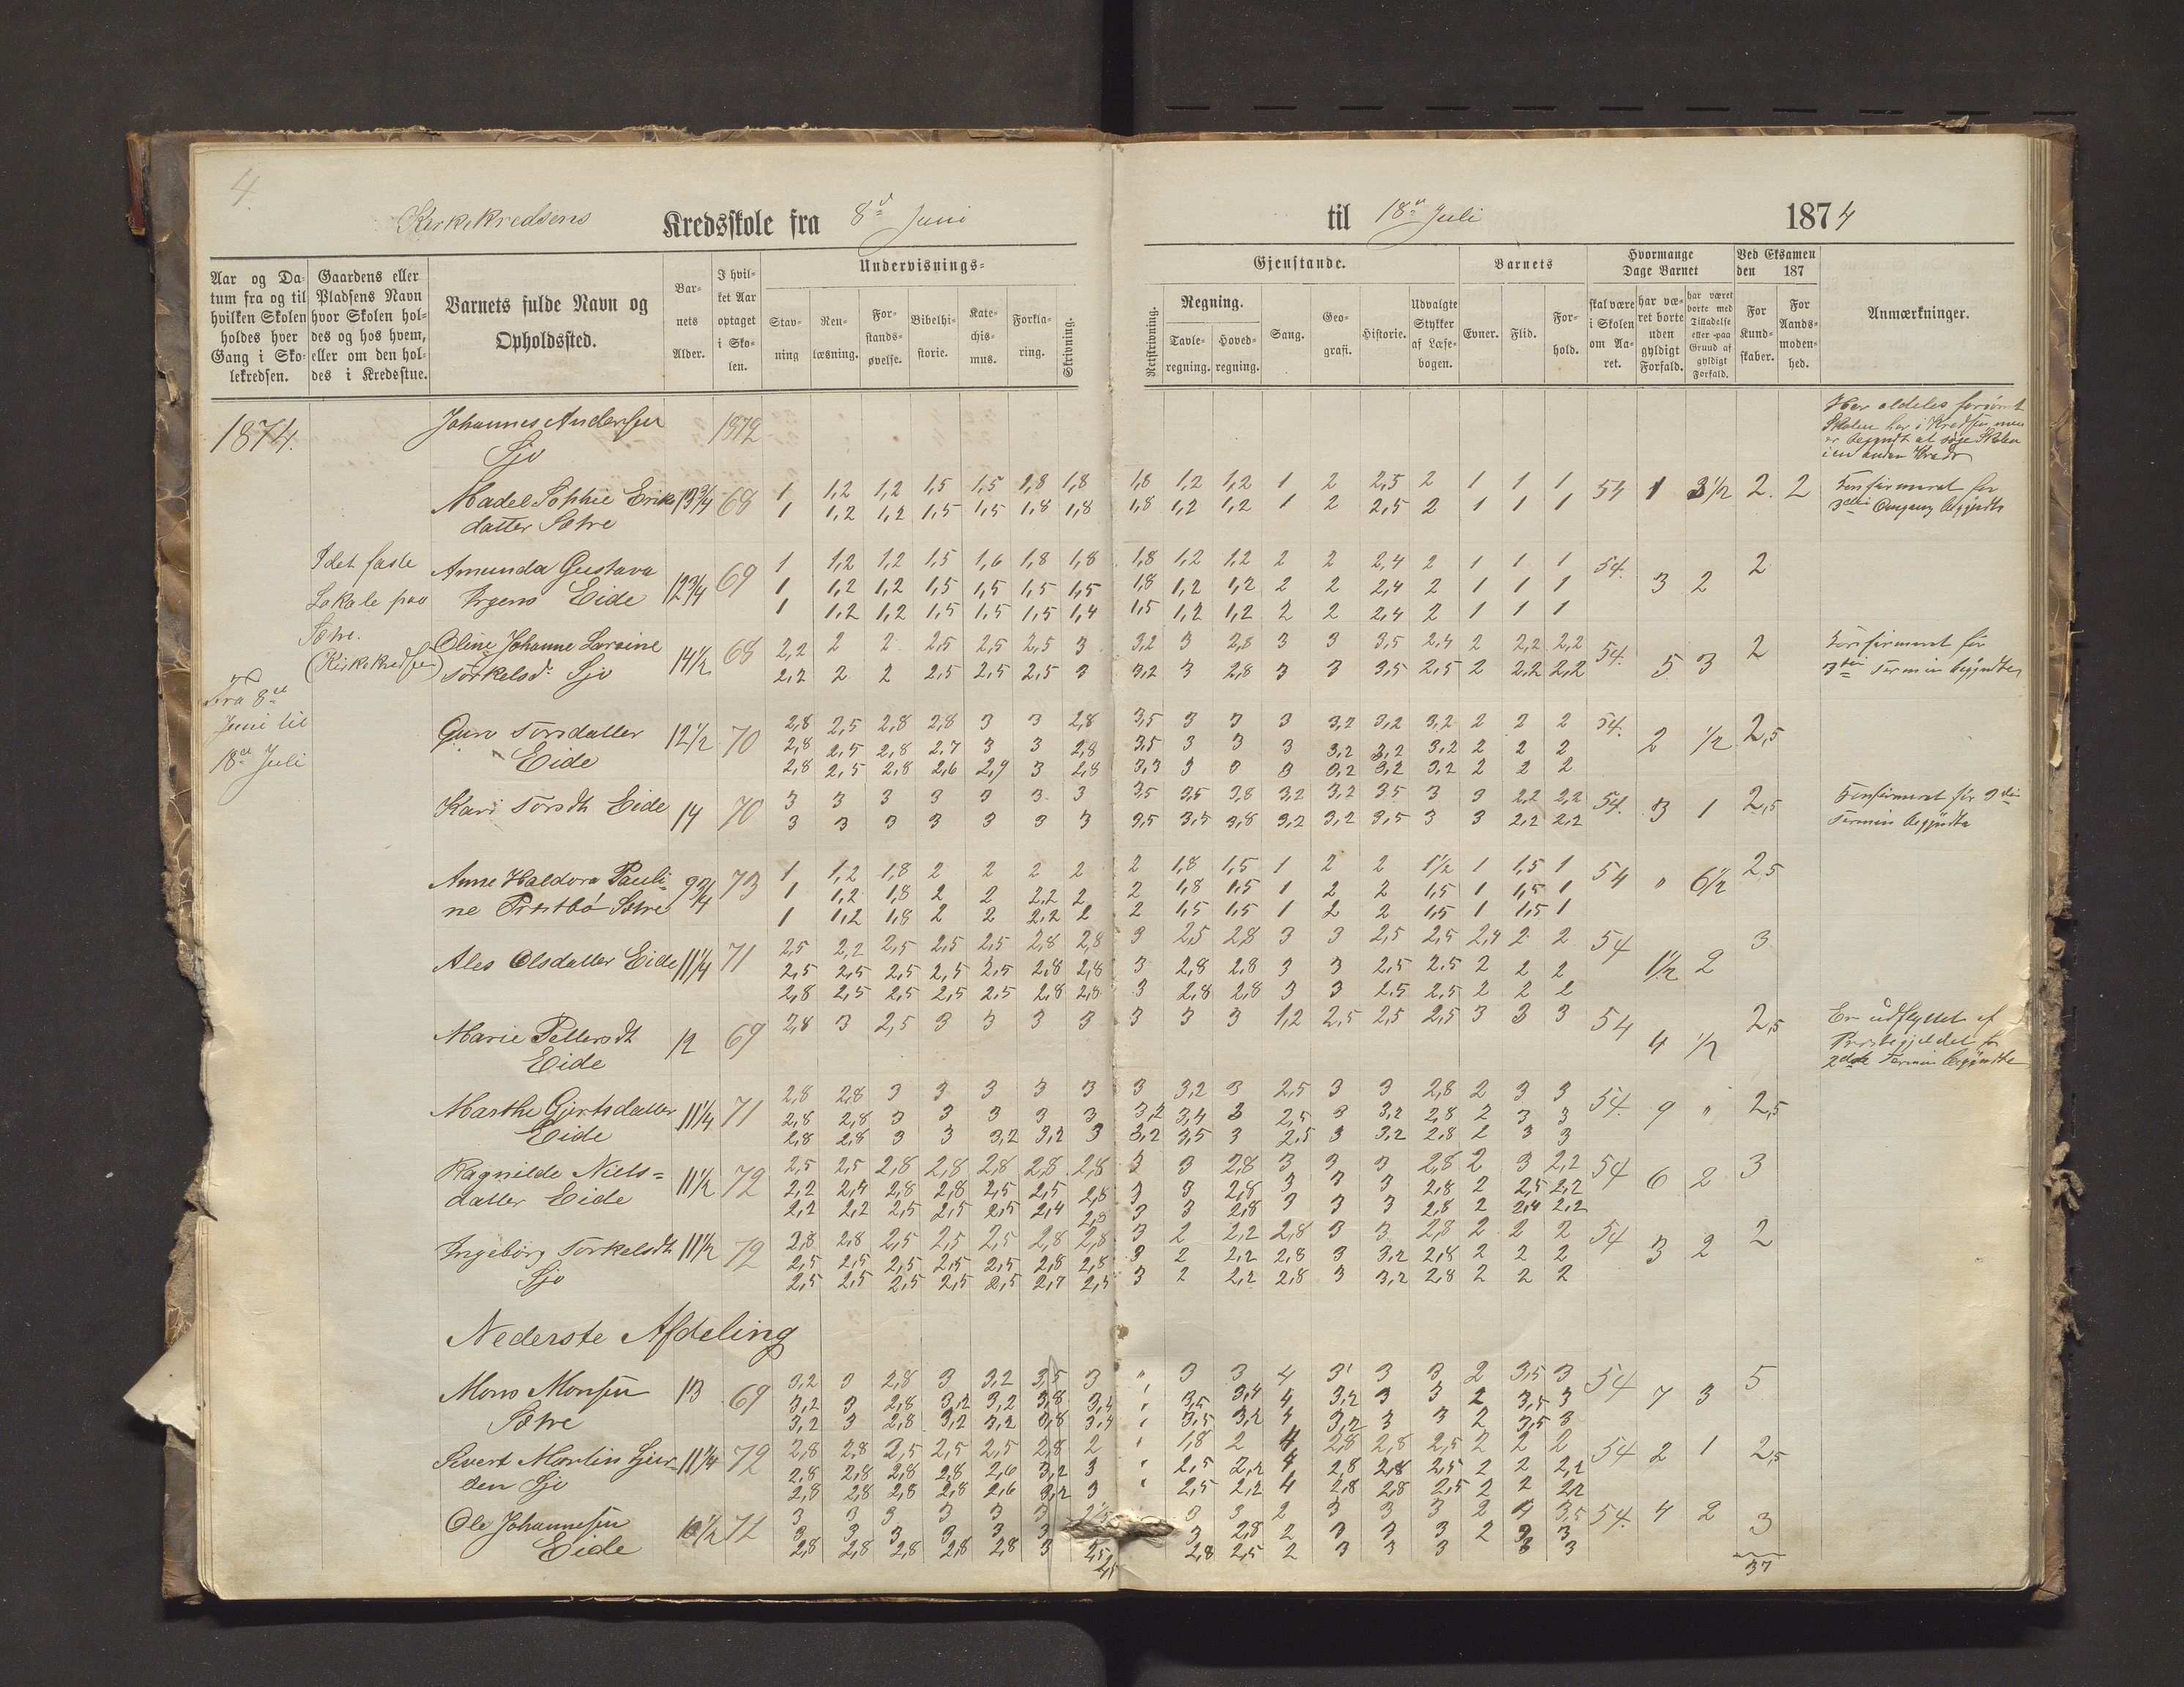 4.
Kirkekredsens Kredsskole fra 8de Juni til 18de Juli 1874
Aar og Da-
tum fra og til
hvilken Skolen
holdes hver
Gang i Sko-
lekredsen.
Gaardens eller
Pladsens Navn
hvor Skolen hol-
des og hos hvem,
eller om den hol-
des i Kredsstue.
Barnets fulde Navn og
Opholdssted.
Bar-
nets
Alder.
I hvil-
ket Aar
optaget
i Sko-
len.
Undervisnings-
Stav-
ning
Ren-
læsning.
For-
stands-
øvelse.
Bibelhi-
storie.
Kate-
chis-
mus.
Forkla-
ring.
Skrivning.
Gjenstande.
Retskrivning.
Regning.
Tavle-
regning.
Hoved-
regning.
Sang.
Geo-
grafi.
Historie.
Udvalgte
Stykker
af Læse-
bogen.
Barnets
Evner.
Flid.
For-
hold.
Hvormange
Dage Barnet
skal være
i Skolen
om Aa-
ret.
har væ-
ret borte
uden
gyldigt
Forfald.
har været
borte med
Tilladelse
eller paa
Grund af
gyldigt
Forfald.
Ved Eksamen
den 187
For
Kund-
skaber.
For
Aands-
moden-
hed.
Anmærkninger.
1874.
Johannes Andersen 1872
Sjo
Har aldeles forsømt
Skolen her i Kredsen, men
er begyndt at søge Skolen
i en anden Kreds
Madel Sophie Eriks 13 3/4 68 1 1,2 1,2 1,5 1,5 1,8 1,8 1,8 1,2 1,2 1 2 2,5 2 1 1 1 54 1 3 1/2 2. 2
datter Sætre 1 1,2 1,2 1,5 1,5 1,8 1,8 1,8 1,2 1,2 1 2 2,5 2 1 1 1
Konfirmeret før
3die Omgang begyndte
I det faste
Lokale paa
Sætre.
(Kirkekredsen)
Fra 8de
Juni til
18de Juli
Amunda Gustava 12 3/4 69 1 1,2 1,2 1,5 1,6 1,8 1,8 1,8 1,2 1,2 2 2 2,4 2 1 1 1 54. 3 2 2
Irgens Eide 1 1,2 1,2 1,5 1,5 1,5 1,5 1,8 1,2 1,2 2 2 2,4 2 1 1 1
1 1,2 1,2 1,5 1,5 1,5 1,4 1,5 1,2 1,2 2 2 2,4 2 1 1 1
Oline Johanne Lavine 14 1/2 68 2,2 2 2 2,5 2,5 2,5 3 3,2 3 2,8 3 3 3,5 2,4 2 2,2 2,2 54. 5 3 2
Torkelsd. Sjo 2,2 2 2 2,5 2,5 2,5 3 3,2 3 2,8 3 3 3,5 2,5 2 2,2 2,2
Konfirmeret før
3die Termin begyndte
Guro Torsdatter 12 1/2 70 2,8 2,5 2,8 2,8 3 3 2,8 3,5 3 3 3 3,2 3,2 3,2 2 2 2 54. 2 1/2 2,5
Eide 2,8 2,5 2,8 2,7 3 3 2,8 3,5 3 3 3 3,2 3,2 3,2 2 2 2
2,8 2,5 2,8 2,6 2,9 3 2,8 3,3 3 3 3 3,2 3,2 3,2 2 2 2
Kari Torsdt Eide 14 70 3 3 3 3 3 3 3 3,5 3,5 3,8 3,2 3,2 3,5 3 3 2,2 2,2 54. 3 1 2,5
3 3 3 3 3 3 3 3,5 3,5 3,8 3,2 3,2 3,5 3 3 2,2 2,2
Konfirmeret før 3die
Termin begyndte
Anne Haldora Pauli- 9 3/4 73 1 1,2 1,8 2 2 2 2 2 1,8 1,5 1 2 2 1 1/2 1 1,5 1 54 " 6 1/2 2,5
ne Prestbø Sætre 1 1,2 1,8 2 2 2,2 2 2 1,8 1,5 1 2 2 1,5 1 1,5 1
1 1,2 1,8 2 2 2,2 2 2 1,5 1,5 1 2 2 1,5 1 1,5 1
Ales Olsdatter Eide 11 1/4 71 2,5 2,2 2,5 2,5 2,5 2,8 2,8 3 2,5 2,8 3 3 2,5 2,5 2,4 2 2 54 1 1/2 2 3
2,5 2,5 2,5 2,5 2,5 2,8 2,8 3 2,8 2,8 3 3 2,5 2,5 2 2 2
2,8 2,5 2,5 2,5 2,5 2,8 2,8 3 2,8 2,8 3 3 2,5 2,5 2 2 2
Marie Pettersdt 12 69 2,8 3 2,5 3 3 3 3 3 3 3 1,2 2,5 2,5 2,5 3 3 3 54 4 1/2 2,5
Eide
Er udflyttet af
Prestegjeldet før
2den Termin begyndte
Marthe Gjertsdatter 11 1/4 71 2,8 2,8 3 3 3 3 3 3 3,2 3 2,5 3 3 2,8 2 3 3 54. 9 " 2,5
Eide 2,8 2,8 3 3 3 3 3 3,2 3,4 3 2,5 3 3,2 2,8 2 3 3
2,8 2,8 3 3 3,2 3,2 3 3,2 3,5 3 2,5 3 3,2 2,8 2 3 3
Ragnilde Niels- 11 1/2 72 2,5 2,5 2,8 2,8 2,8 2,8 2,8 3 3 2,8 3 3 3 2,8 2 3 2,2 54 6 2 3
datter Eide 2,2 2,4 2,8 2,8 2,5 2,5 2,8 3 3 2,8 3 3 3 2,8 2 2,5 2,2
2,2 2,2 2,5 2,5 2,5 2,4 2,8 3 3 2,8 3 3 3 2,8 2 2,4 2,2
Ingebørg Torkelsdt 11 1/2 72 2,8 2,8 2,5 2,5 2,5 2,8 2,8 3 2 2,2 2,8 3 3 2,8 2 2 2 54 3 2 2
Sjo 2,5 2,5 2,5 2,5 2,5 2,8 2,8 3 2 2,2 2,8 3 3,2 2,8 2 2 2
2,5 2,5 2,5 2,5 2,5 2,7 2,5 3 2 2,2 2,8 3 3,2 2,8 2 2 2
Nederste Afdeling
Mons Monsen 13 69 3,2 3 2,8 3 3,2 3,5 3 " 3 3 4 3 3 3 2 3,5 3 54 7 3 5
Sætre 3,2 3 2,8 3,2 3,2 3,8 3,4 " 3,5 3,4 4 3,2 3 3 2 3,5 3
3,2 3 2,8 3,2 3,2 3,8 3,4 " 3,5 3,2 4 3,2 3 3 2 3,5 3
Sivert Martin Gjer- 11 1/4 72 2,8 2,8 2,5 2,5 2,5 2,8 2 " 1,8 2 4 2,8 2,8 2,5 2 2 2 54 2 1 2,5
den Sjo 2,8 2,8 2,8 2,8 2,6 3,2 3 " 2,5 2,2 4 2,8 2,8 2,5 2 2 2,2
2,8 2,8 2,8 2,8 2,6 3,2 3 " 2,5 2,2 4 2,8 2,8 2,5 2 2 2,2
Ole Johannesen 10 1/2 72 3 3 3 3 3 3 2,5 3 3 2 3 3 3 2 4 3,5 54. 4 2 3
Eide 3 3 3 3 3 3 3 2,8 2 3 3 3 2 3 3
2,8 2,8 2,8 2,8 2,8 3 2,5 2,8 2,5 2 3 3 3 3 3
2,5
37